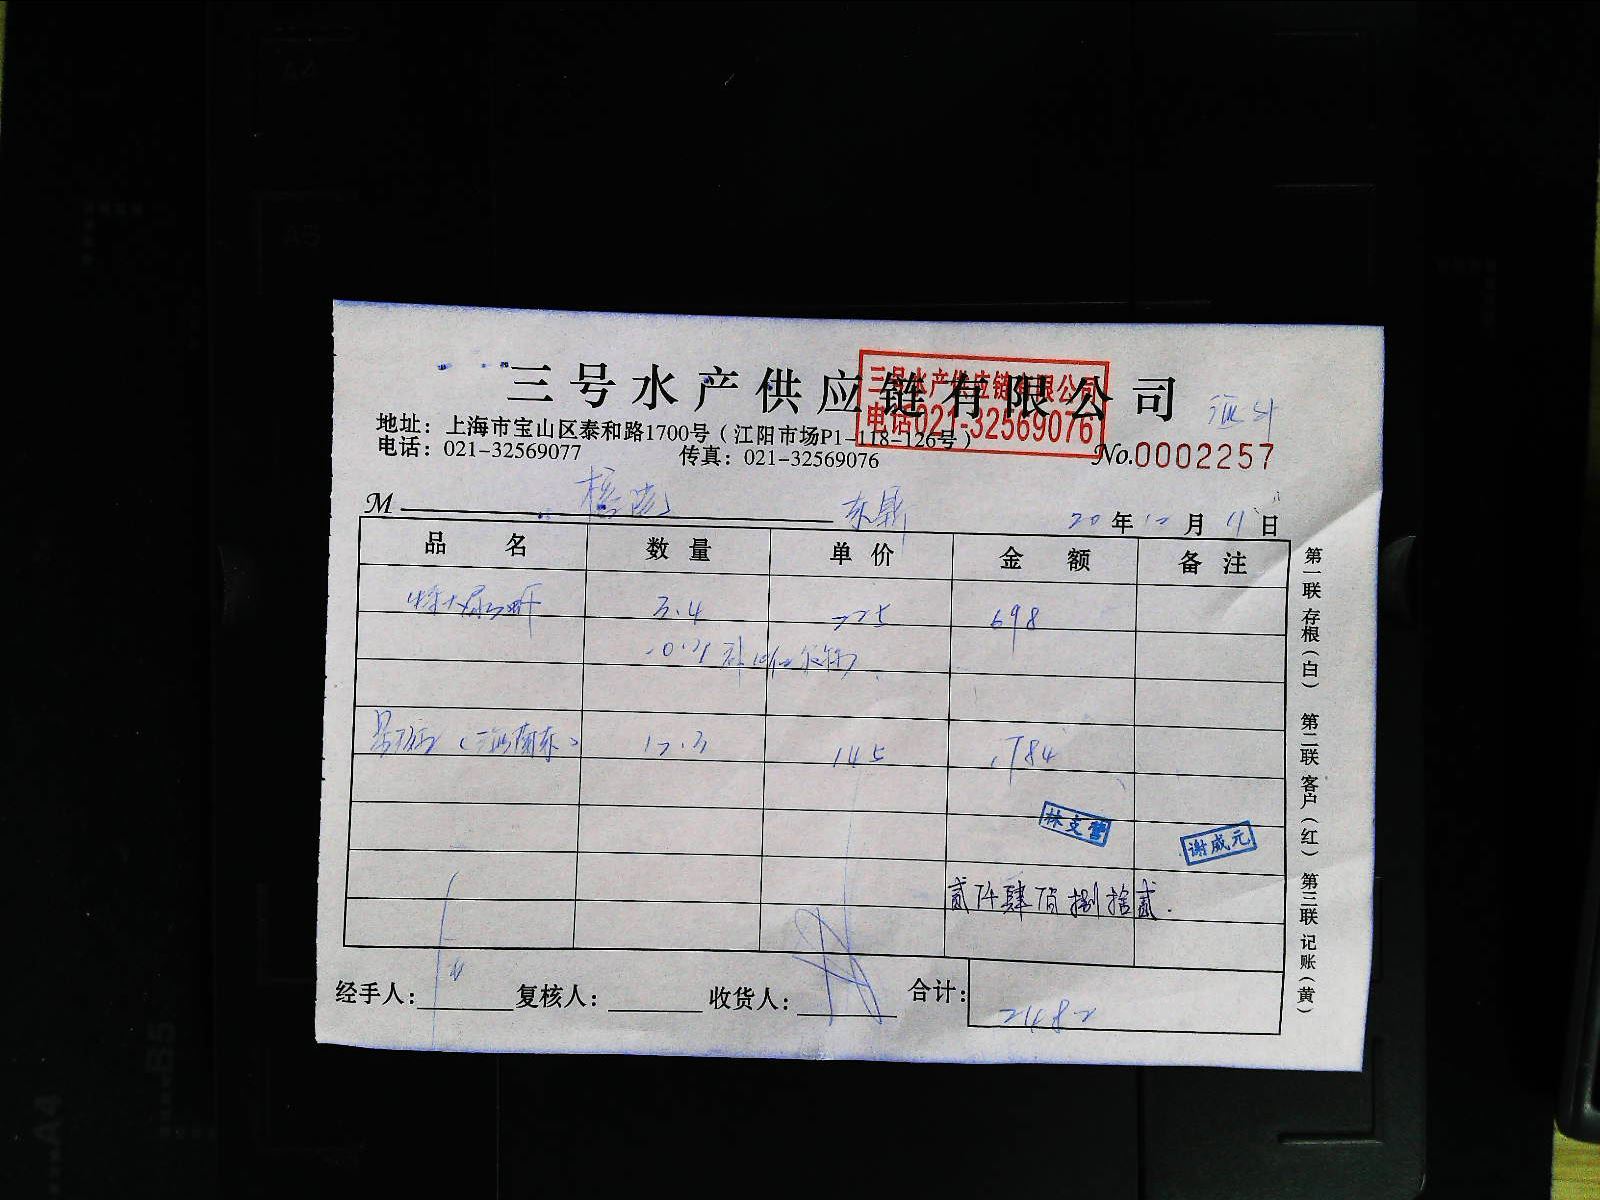 三号水产供应链有限公司
三号水产供应链有限公司
电话021-32569076
地址：上海市宝山区泰和路1700号（江阳市场P1-118-126号）
电话：021-32569077 传真：021-32569076
No.0002257
M
20年12月11日
品名 数量 单价 金额 备注
3.4 225 698
12.3 145 1784
林支营
谢威元
贰仟肆佰捌拾贰
经手人： 复核人： 收货人： 合计：2482
第一联 存根（白） 第二联 客户（红） 第三联 记账（黄）
A4
A5
B5
A4